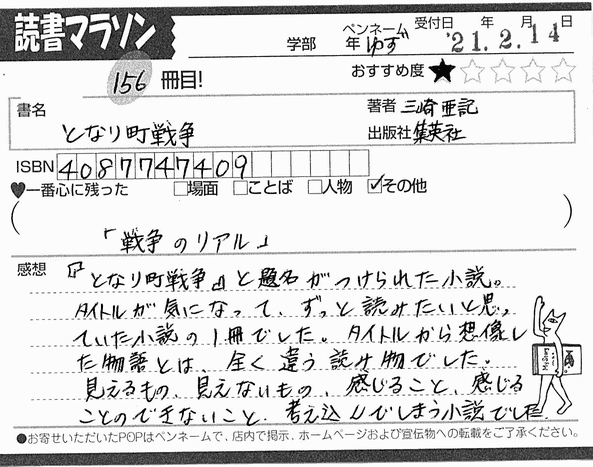 読書マラソン
学部 年 ペンネーム ゆず 受付日 '21年 2月 14日
156 冊目!
おすすめ度 ★☆☆☆☆
書名 となり町戦争
著者 三崎亜記
出版社 集英社
ISBN 4087747409
♥一番心に残った □場面 □ことば □人物 ☑その他
(「戦争のリアル」)
感想 『となり町戦争』と題名がつけられた小説。
タイトルが気になって、ずっと読みたいと思っ
ていた小説の1冊でした。タイトルから想像し
た物語とは、全く違う読み物でした。
見えるもの、見えないもの、感じること、感じる
ことのできないこと、考え込んでしまう小説でした。
●お寄せいただいたPOPはペンネームで、店内で掲示、ホームページおよび宣伝物への転載をご了承ください。